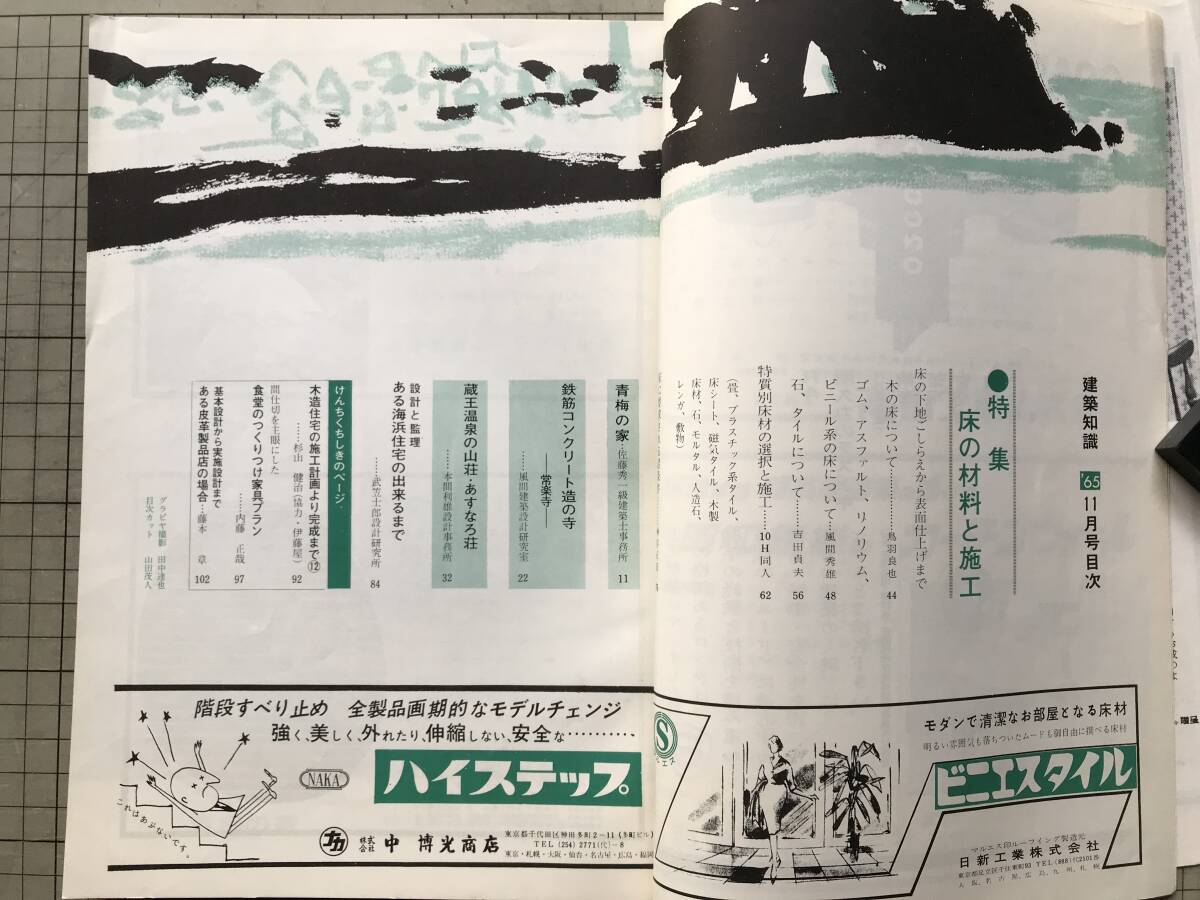 建築知識 '65 11月号目次
●特集
床の材料と施工
床の下地ごしらえから表面仕上げまで
木の床について………鳥羽良也 44
ゴム、アスファルト、リノリウム、
ビニール系の床について…風間秀雄 48
石、タイルについて……吉田貞夫 56
特質別床材の選択と施工……10H同人 62
(畳、プラスチック系タイル、
床シート、磁気タイル、木製
床材、石、モルタル、人造石、
レンガ、敷物)
青梅の家…佐藤秀一級建築士事務所 11
鉄筋コンクリート造の寺
――常楽寺――
……風間建築設計研究室 22
蔵王温泉の山荘・あすなろ荘
……本間利雄設計事務所 32
設計と監理
ある海浜住宅の出来るまで
……武笠士郎設計研究所 84
けんちくちしきのページ
木造住宅の施工計画より完成まで⑫
……杉山 健治(協力・伊藤屋) 92
間仕切を主眼にした
食堂のつくりつけ家具プラン
……内藤 正哉 97
基本設計から実施設計まで
ある皮革製品店の場合…藤本 章 102
グラビヤ撮影 田中達也
目次カット 山田茂人
階段すべり止め 全製品画期的なモデルチェンジ
強く、美しく、外れたり、伸縮しない、安全な………
NAKA
ハイステップ。
これはあぶないです。
ナカ
株式会社 中 博光商店
東京都千代田区神田多町2−11(多町ビル)
TEL (254) 2771(代)−8
東京・札幌・大阪・仙台・名古屋・広島・福岡
S
モダンで清潔なお部屋となる床材
明るい雰囲気も落ちついたムードも御自由に選べる床材
ビニエスタイル
マルエス印ルーフイング製造元
日新工業株式会社
東京都足立区千住東町93 TEL (888)代2101番
大阪、名古屋、広島、九州、札幌